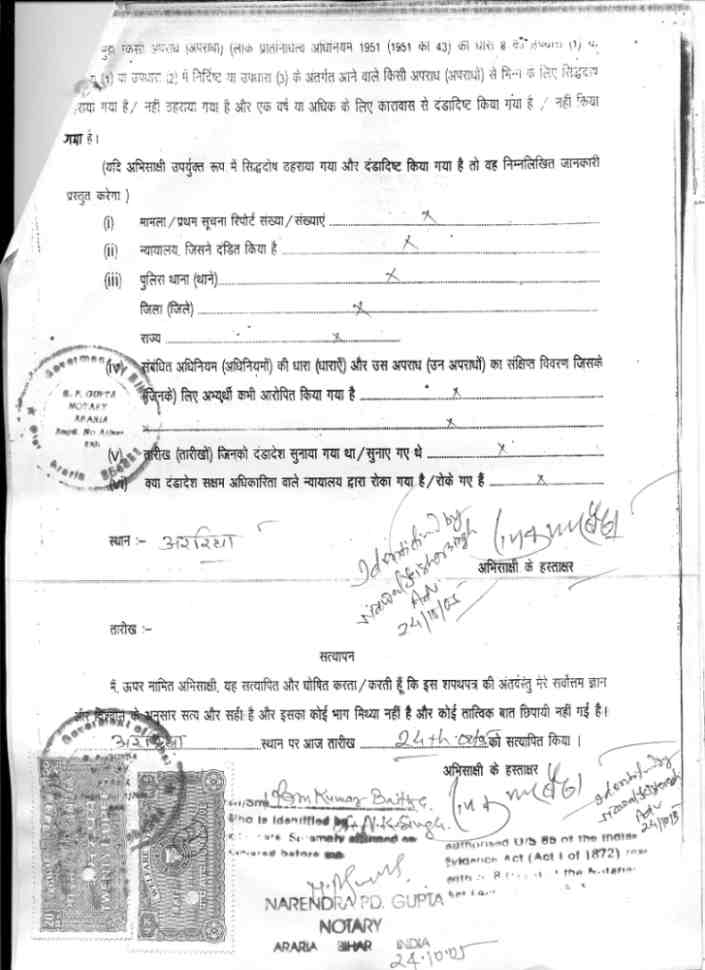 किसी अपराध (अपराधों) (लोक प्रतिनिधित्व अधिनियम 1951 (1951 का 43) की धारा 8 की उपधारा (1) या
(1) या उपधारा (2) में निर्दिष्ट या उपधारा (3) के अंतर्गत आने वाले किसी अपराध (अपराधों) से भिन्न के लिए सिद्धदोष
ठहराया गया है / नहीं ठहराया गया है और एक वर्ष या अधिक के लिए कारावास से दंडादिष्ट किया गया है / नहीं किया
गया है।
(यदि अभिसाक्षी उपर्युक्त रूप में सिद्धदोष ठहराया गया और दंडादिष्ट किया गया है तो वह निम्नलिखित जानकारी
प्रस्तुत करेगा )
(i) मामला/प्रथम सूचना रिपोर्ट संख्या/संख्याएं x
(ii) न्यायालय, जिसने दंडित किया है x
(iii) पुलिस थाना (थाने) x
जिला (जिले) x
राज्य x
(iv) संबंधित अधिनियम (अधिनियमों) की धारा (धाराएँ) और उस अपराध (उन अपराधों) का संक्षिप्त विवरण जिसके
(जिनके) लिए अभ्यर्थी कभी आरोपित किया गया है x
x
(v) तारीख (तारीखों) जिनको दंडादेश सुनाया गया था/सुनाए गए थे x
(vi) क्या दंडादेश सक्षम अधिकारिता वाले न्यायालय द्वारा रोका गया है/रोके गए हैं x
B. P. GUPTA
NOTARY
ARARIA
Araria
स्थान :- अररिया
Identified by
Adv
24/10/05
अभिसाक्षी के हस्ताक्षर
तारीख :-
सत्यापन
मैं, ऊपर नामित अभिसाक्षी, यह सत्यापित और घोषित करता/करती हूँ कि इस शपथपत्र की अंतर्वस्तु मेरे सर्वोत्तम ज्ञान
और विश्वास के अनुसार सत्य और सही है और इसका कोई भाग मिथ्या नहीं है और कोई तात्विक बात छिपायी नहीं गई है।
अररिया स्थान पर आज तारीख 24th को सत्यापित किया ।
अभिसाक्षी के हस्ताक्षर
Identified by
Adv
24/10/05
Ram Kumar
Who is identified by N.K. Singh
Solemnly affirmed
before me
authorised U/S 85 of the Indian
Evidence Act (Act I of 1872)
NARENDRA PD. GUPTA
NOTARY
ARARIA BIHAR INDIA
24.10.05